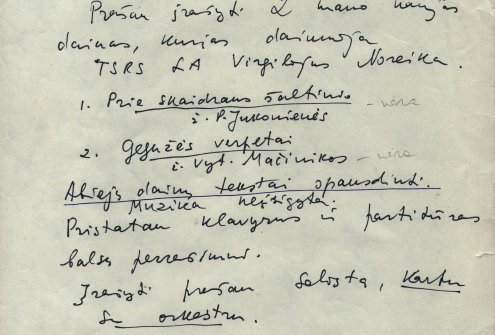 Prašau įrašyti 2 mano naujas
dainas, kurias dainuoja
TSRS LA Virgilijus Noreika.
1. Prie skaidraus šaltinio – nėra
ž. P. Jukonienės
2. Gegužės verpetai
ž. Vyt. Mačinikos – nėra
Abiejų dainų tekstai spausdinti.
Muzika neįsigyta.
Pristatau klavyrus ir partitūras
balsų perrašimui.
Įrašyti prašau solistą, kartu
su orkestru.